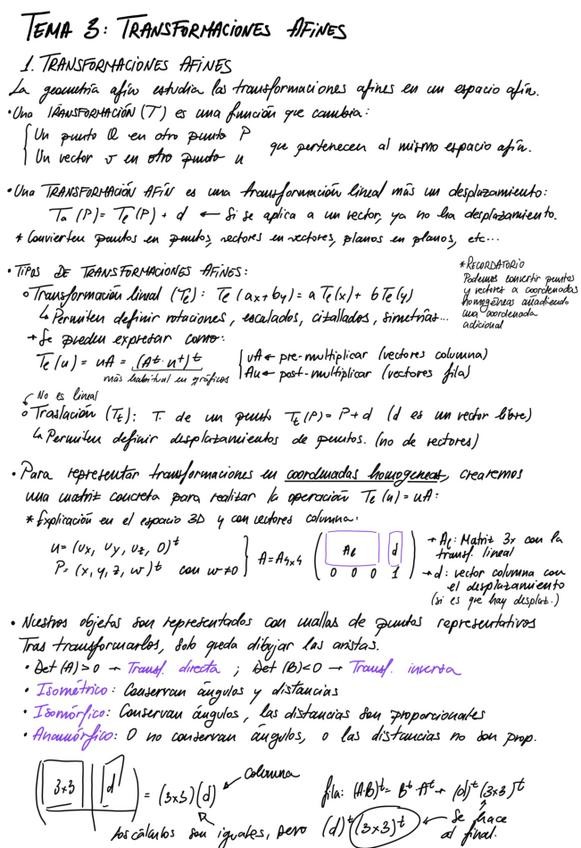 TEMA 3: TRANSFORMACIONES AFINES
1. TRANSFORMACIONES AFINES
La geometría afín estudia las transformaciones afines en un espacio afín.
• Una TRANSFORMACIÓN (T) es una función que cambia:
Un punto Q en otro punto P
Un vector v en otro punto u
que pertenecen al mismo espacio afín.
• Una TRANSFORMACIÓN AFÍN es una transformación lineal más un desplazamiento:
Ta (P) = Te (P) + d ← Si se aplica a un vector, ya no ha desplazamiento.
* Convierten puntos en puntos, vectores en vectores, planos en planos, etc...
• TIPOS DE TRANSFORMACIONES AFINES:
*RECORDATORIO
Podemos convertir puntos
y vectores a coordenadas
homogéneas añadiendo
una coordenada
adicional
o Transformación lineal (Te): Te (ax+by) = a Te(x) + b Te(y)
↳ Permiten definir rotaciones, escalados, cizallados, simetrías...
→ Se pueden expresar como:
Te (u) = uA = (At · ut)t
más habitual en gráficos
uA ← pre-multiplicar (vectores columna)
Au ← post-multiplicar (vectores fila)
No es lineal
o Traslación (Tt): T. de un punto Tt (P) = P + d (d es un vector libre)
↳ Permiten definir desplazamientos de puntos. (no de vectores)
• Para representar transformaciones en coordenadas homogeneas, crearemos
una matriz concreta para realizar la operación Te (u) = uA:
* Explicación en el espacio 3D y con vectores columna:
u = (ux, uy, uz, 0)t
P = (x, y, z, w)t con w≠0
A = A4x4
Ae d
0 0 0 1
→ Ae: Matriz 3x con la
transf. lineal
→ d: vector columna con
el desplazamiento
(si es que hay desplaz.)
• Nuestros objetos son representados con mallas de puntos representativos
Tras transformarlos, solo queda dibujar las aristas.
• Det (A) > 0 → Transf. directa ; Det (B) < 0 → Transf. inversa
• Isométrico: Conservan ángulos y distancias
• Isomórfico: Conservan ángulos, las distancias son proporcionales
• Anamórfico: O no conservan ángulos, o las distancias no son prop.
(3x3 | d) = (3x3)(d) ← columna
los cálculos son iguales, pero
fila: (A·B)t = Bt · At → (d)t (3x3)t
(d)t (3x3)t ← Se hace
al final.